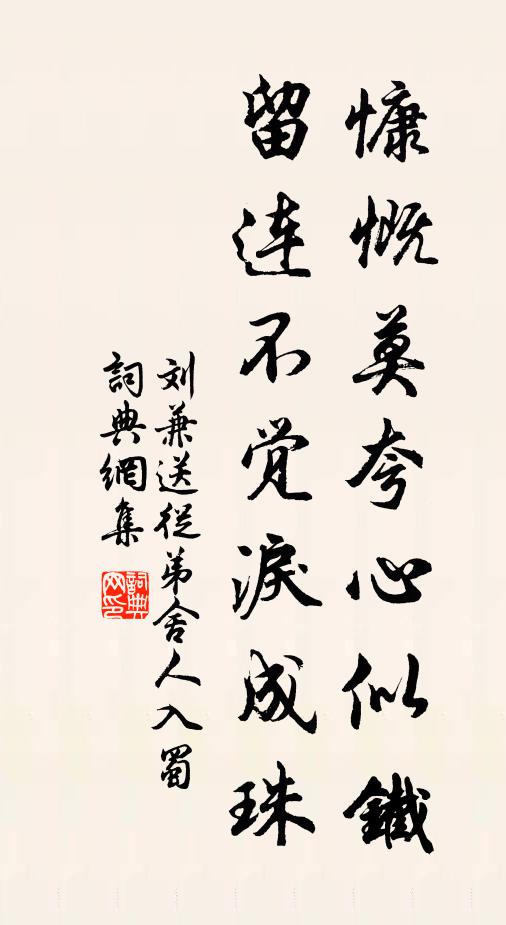 慷慨莫夸心似鐵
留連不觉淚成珠
刘兼送從弟舍人入蜀
詞典網集
詞典網印